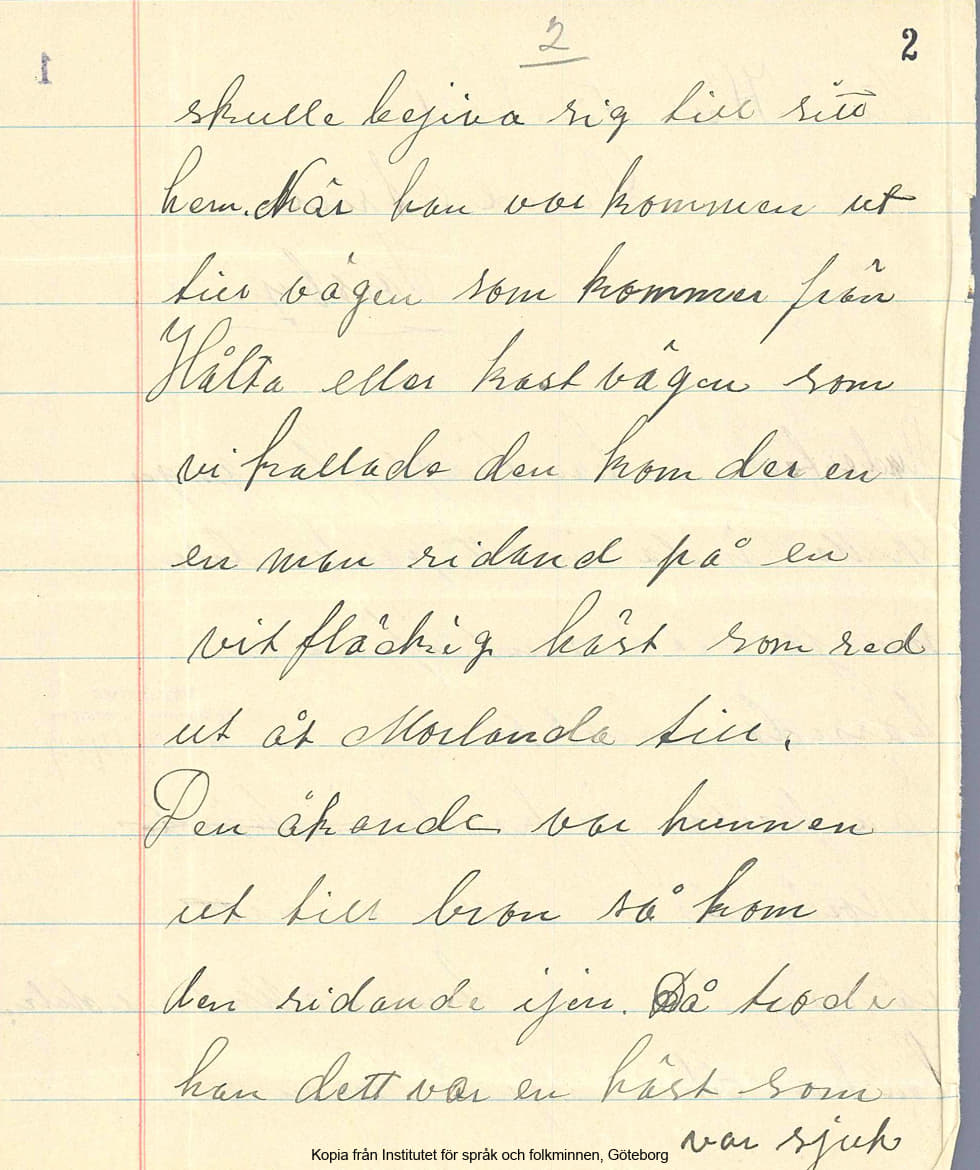 2
2
1
skulle bejiva sig till sitt
hem. När han var kommen ut
till vägen som kommer från
Hålta eller kastvägen som
vi kallade den kom der en
en man ridand på en
vit fläckig häst som red
ut åt Morlanda till.
Den åkande var hunnen
ut till bron så kom
den ridande ijen. Då trode
han dett var en häst som
var sjuk
Kopia från Institutet för språk och folkminnen, Göteborg